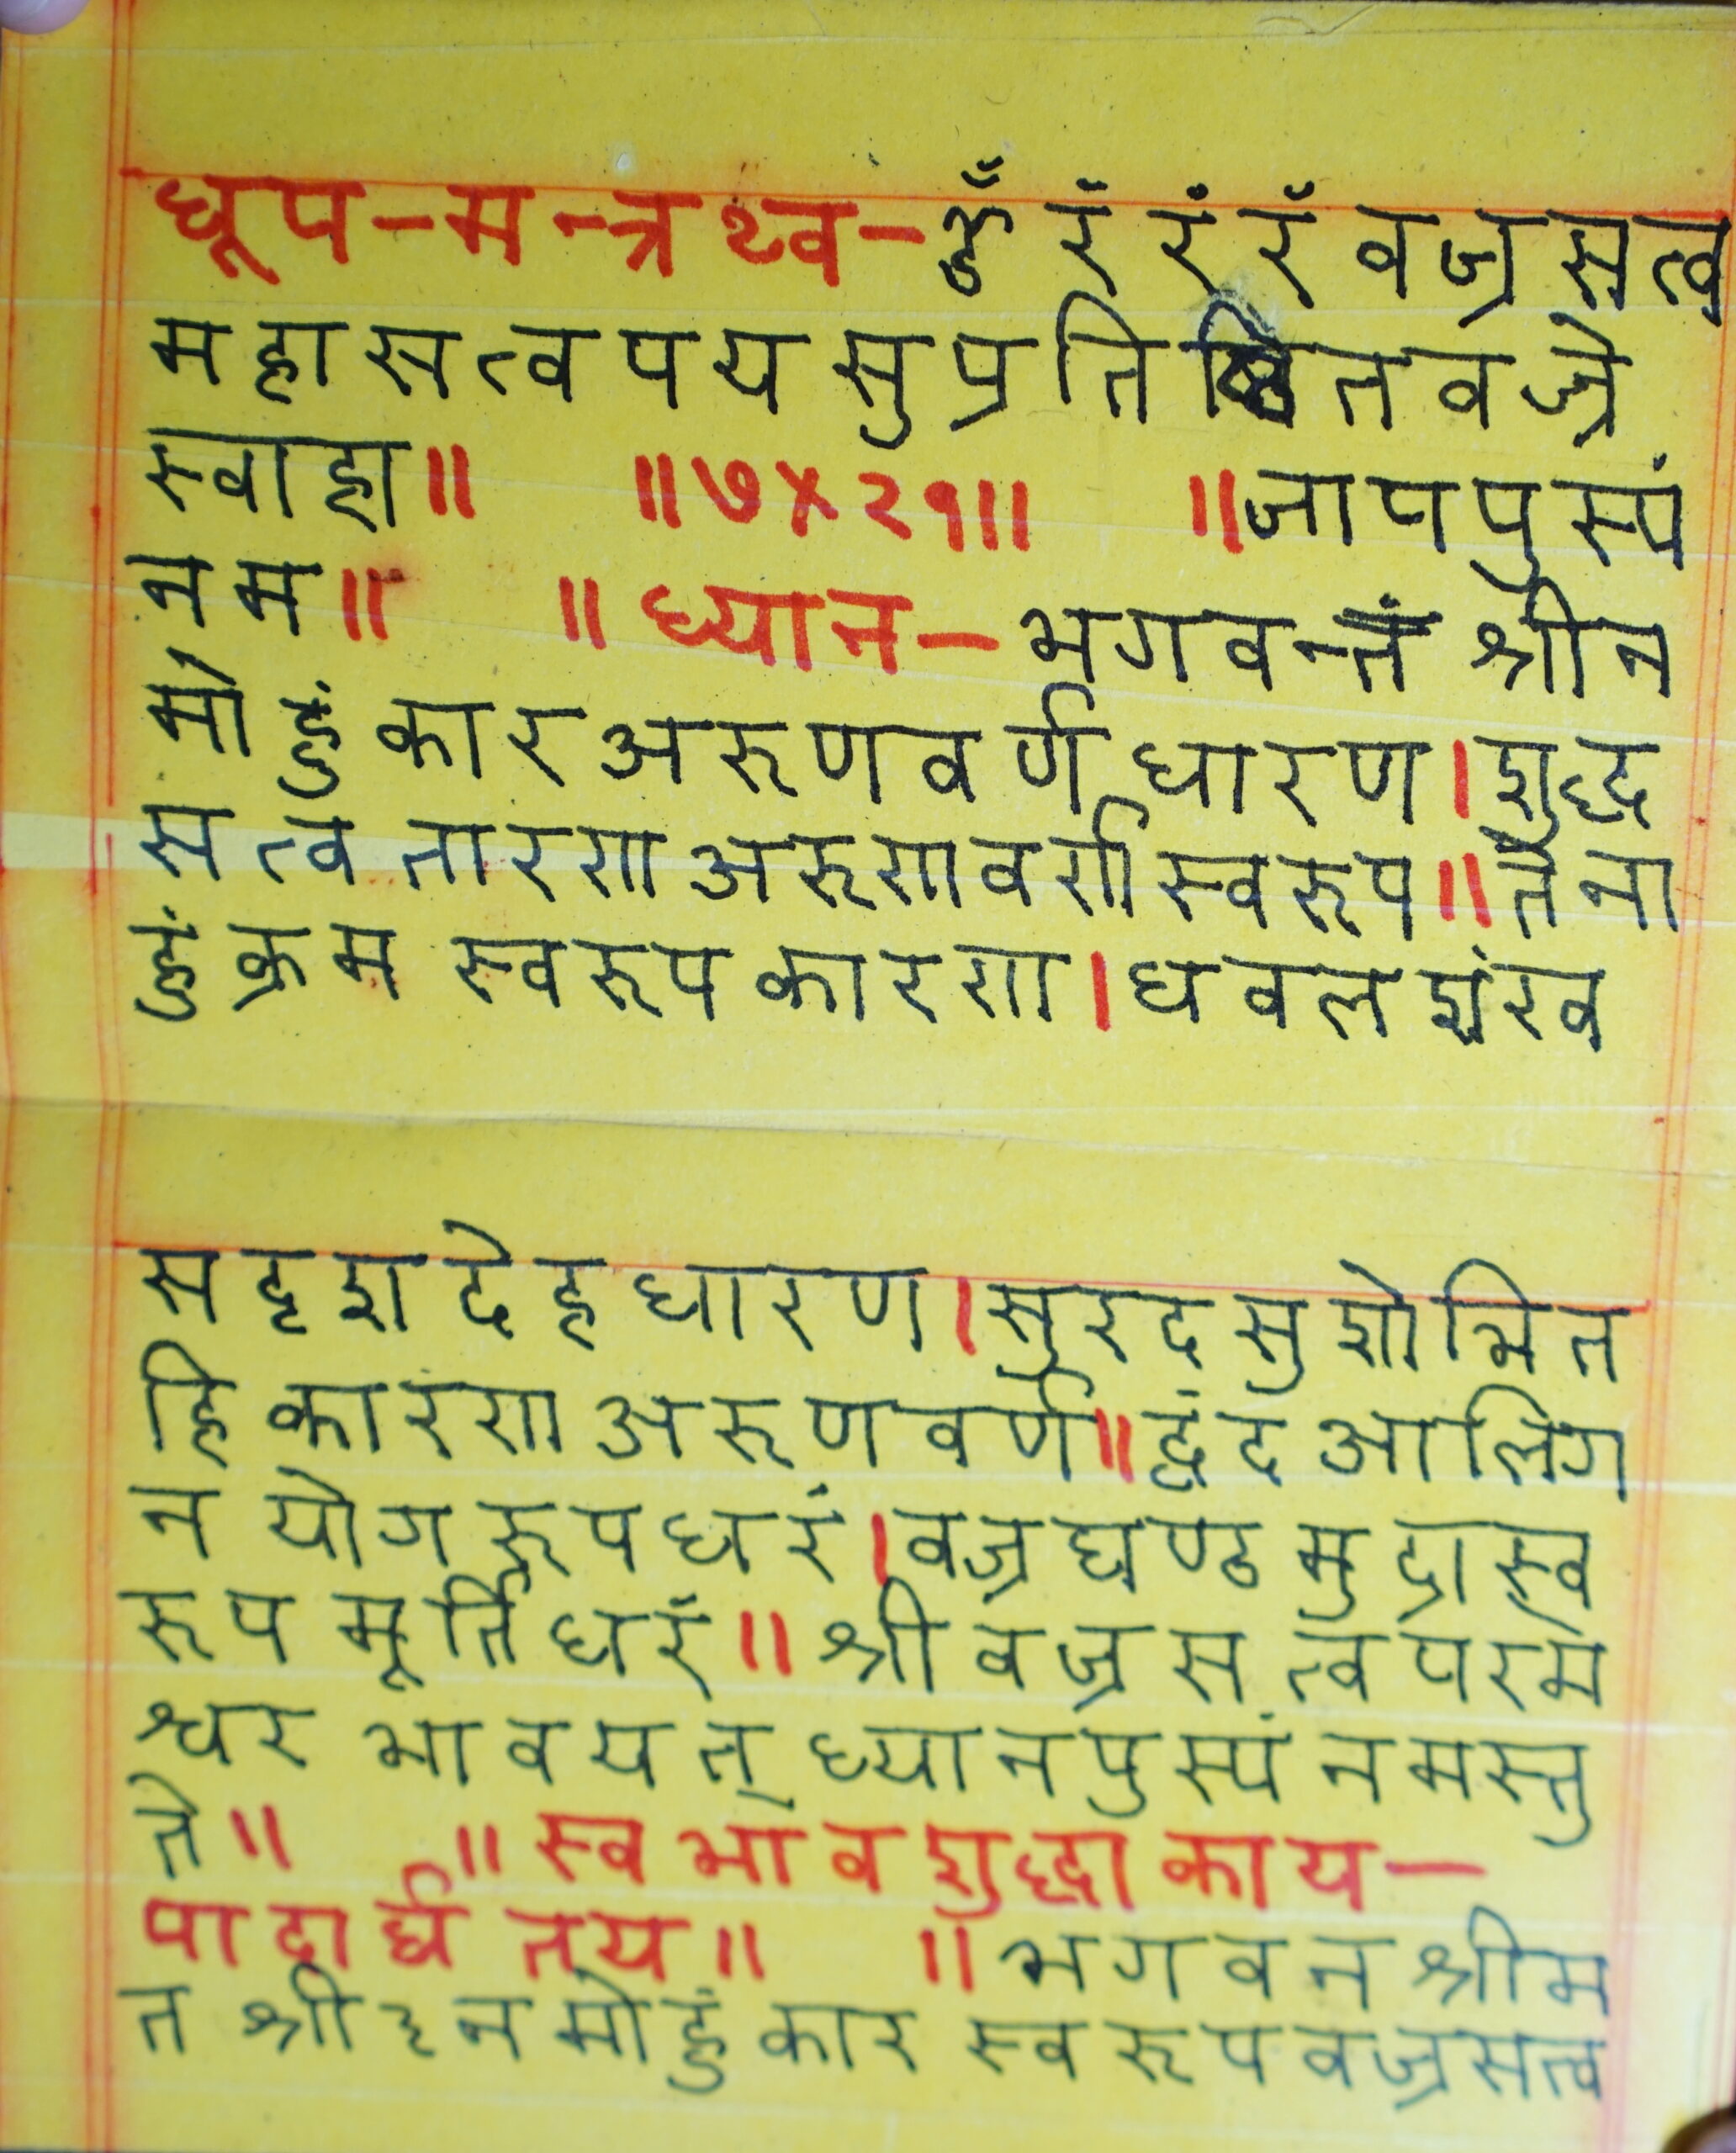 धूप-म-न्त्रथ्व-ॐ रं रं रं वज्रसत्व
महासत्वपयसुप्रतिष्ठितवज्रे
स्वाहा॥ ॥७×२१॥ ॥जापपुस्पं
नम॥ ॥ध्यान-भगवन्तं श्रीन
मो हुं कार अरुणवर्ण धारण।शुद्ध
सत्व तारण अरुणवर्ण स्वरूप॥तेना
हुं क्रम स्वरूप कारण।धवल शंख
सदृश देह धारण।सुरद सुशोभित
हि कारण अरुणवर्ण॥द्वंद आलिंग
न योगरूपधरं।वज्रघण्ठ मुद्रास्व
रूप मूर्तिधरं॥श्रीवज्रसत्व परमे
श्वर भावयत् ध्यानपुस्पं नमस्तु
ते॥ ॥स्वभावशुद्धा काय-
पादार्घ तय॥ ॥भगवन श्रीम
त श्री३नमो हुं कार स्वरूपवज्रसत्व